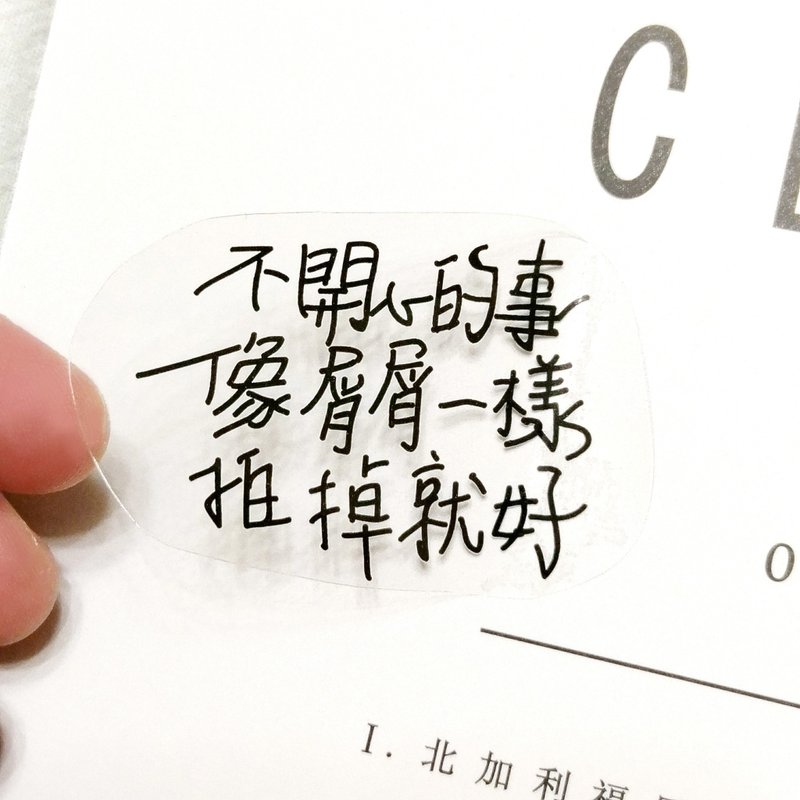 C
不開心的事
像屑屑一樣
拍掉就好
O
I. 北加利福